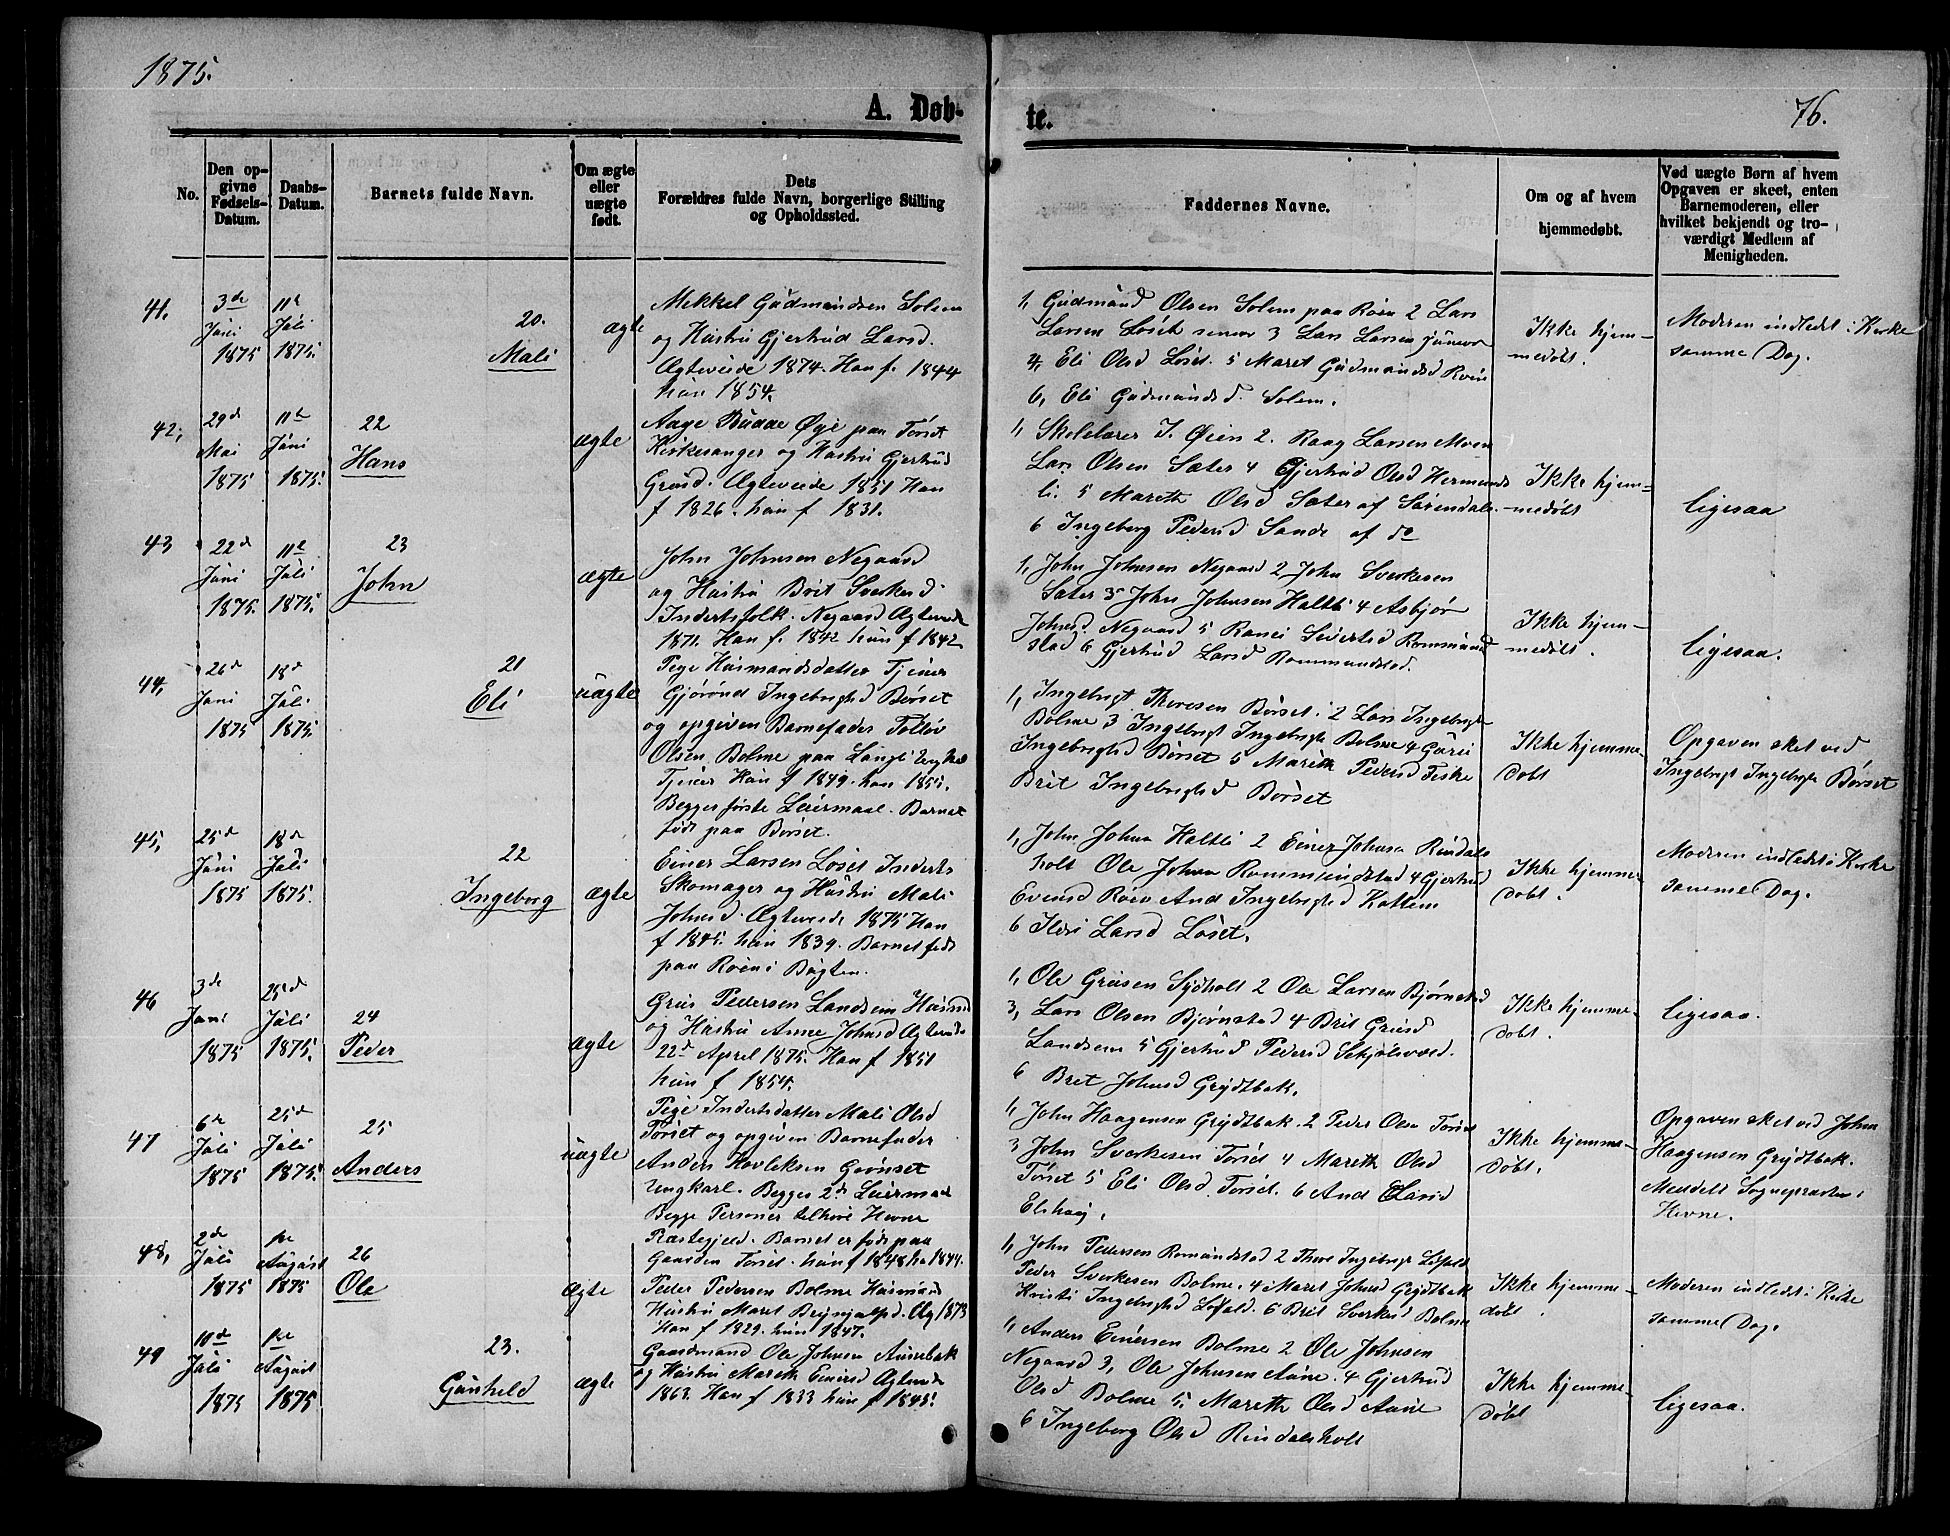 1875.
76.
A. Døb-
te.
No.
Den op-
givne
Fødsels-
Datum.
Daabs-
Datum.
Barnets fulde Navn.
Om ægte
eller
uægte
født.
Dets
Forældres fulde Navn, borgerlige Stilling
og Opholdssted.
Faddernes Navne.
Om og af hvem
hjemmedøbt.
Ved uægte Børn af hvem
Opgaven er skeet, enten
Barnemoderen, eller
hvilket bekjendt og tro-
værdigt Medlem af
Menigheden.
41.
3de
Juni
1875
11te
Juli
1875.
20.
Mali
ægte
Mikkel Gudmundsen Solem
og Hustru Gjertrud Larsd.
Ægteviede 1874. Han f. 1844
hun 1854.
1, Gudmund Olsen Solem paa Roen 2 Lars
Larsen Løset senior 3 Lars Larsen junior
4, Eli Olsd Løset. 5 Maret Gudmundsd Roen
6, Eli Gudmundsd. Solem.
Ikke hjem-
medøbt.
Moderen indledet i Kirke
samme Dag.
42,
29d
Mai
1875
11te
Juni
1875.
22
Hans
ægte
Aage Budde Øye paa Torset
Kirkesanger og Hustru Gjertrud
Ægteviede 1851 Han
f 1826. hun f 1831.
1, Skolelærer J. Øien 2. Raag Larsen Moen
Lars Olsen Sæter 4 Gjertrud Olsd Hermunds
li. 5 Mareth Olsd Sæter af Surendal.
6 Ingeborg Pedersd Sande af do
Ikke hjem-
medøbt
ligesaa
43
22d
Juni
1875.
11te
Juli
1875.
23
John
ægte
John Johnsen Negaard
og Hustru Brit Sverkesd.
Inderstfolk. Negaard Ægteviede
1871. Han f. 1842 hun f 1842
1, John Johnsen Negaard 2 John Sverkesen
Sæter 3 John Johnsen Haltli 4 Asbjør
Johnsd. Negaard 5 Ranei Seiertsd Rommund
stad 6 Gjertrud Larsd Rommundstad.
Ikke hjem-
medøbt.
ligesaa.
44,
26d
Juni
1875
18d
Juli
1875.
21
Eli
uægte
Pige Husmandsdatter Tjener
Gjørond Ingebrigtsd Børset
og opgiven Barnefader
Olsen Bolme paa
Tjener Han f 1849. hun 1851.
Begges første Leiermaal. Barnet
født paa Børset.
1, Ingebrigt Thoresen Børset. 2 Lars Ingebrigts
Bolme 3 Ingebrigt Ingebrigts Bolme 4 Guri
Ingebrigtsd Børset 5 Mareth Pedersd Fiske
Brit Ingebrigtsd Børset
Ikke hjemme-
døbt
Opgaven sket ved
Ingebrigt Ingebrigts Børset
45,
25d
Juni
1875
18d
Juli
1875.
22
Ingeborg
ægte
Einer Larsen Løset Inderst
Skomager og Hustru Mali
Johnsd. Ægteviede 1875 Han
f 1845. hun 1839. Barnet født
paa Roen i Bøgten.
1, John Johns Haltli 2 Einer Johnsen Rindals
holt Ole Johnsen Rommundstad 4 Gjertrud
Evensd Roen And Ingebrigtsd Kattem
6 Larsd Løset.
Ikke hjemme-
døbt.
Moderen indledet i Kirke
samme Dag.
46
3de
Juni
1875
25d
Juli
1875.
24
Peder
ægte
Gruis Pedersen Landsem Husmd
og Hustru Anne Johnsd Ægteviede
22d April 1875. Han f 1851
hun f 1854.
1, Ole Gruisen Sydholt 2 Ole Larsen Bjørnstad
3, Lars Olsen Bjørnstad 4 Brit Gruisd
Landsem 5 Gjertrud Pedersd
6 Bret Johnsd Grydtbak.
Ikke hjemme-
døbt.
ligesaa.
47
6te
Juli
1875
25d
Juli
1875.
25
Anders
uægte
Pige Inderstdatter Mali Olsd
Torset og opgiven Barnefader
Anders Havleksen Grønset
Ungkarl. Begges 2de Leiermaal
Begge Personer tilhøre Hevne
Præstegjeld. Barnet er født paa
Gaarden Torset. hun f 1848 han 1844.
1, John Haagensen Grydtbak. 2 Peder Olsen Torset
3 John Sverkesen Torset 4 Mareth Olsd
Torset 5 Eli Olsd. Torset. 6 And Larsd
Elshaug.
Ikke hjemme-
døbt.
Opgaven sket ved John
Haagensen Grydtbak.
Meddelt Sognepræsten i
Hevne.
48,
2de
Juli
1875
1ste
August
1875
26
Ole
ægte
Peder Pedersen Bolme Husmand
Hustru Maret Æg 1873
Han f 1829. hun 1847.
1, John Pedersen Romundstad 2 Thore Ingebrigts
Peder Sverkesen Bolme. 4 Maret Johnsd Grydtbak
Kristi Ingebrigtsd 6 Brit Sverkesd Bolme
Ikke hjemme-
døbt.
Moderen indledet i Kirke
samme Dag.
49
10d
Juli
1875
1ste
August
1875
23.
Gunhild
ægte
Gaardmand Ole Johnsen Aunebak
og Hustru Mareth Einersd Ægteviede
1863. Han f 1833 hun f 1845.
1, Anders Einersen Bolme 2 Ole Johnsen
Negaard 3, Ole Johnsen Aune. 4 Gjertrud
Olsd Bolme 5, Mareth Olsd Aune
6 Ingeborg Olsd Rindalsholt
Ikke hjemme-
døbt
ligesaa.